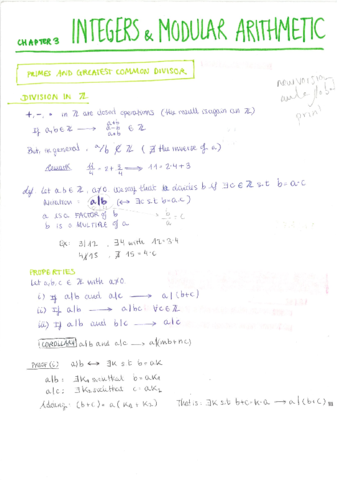 CHAPTER 3 INTEGERS & MODULAR ARITHMETIC
PRIMES AND GREATEST COMMON DIVISOR
DIVISION IN Z
+, -, • in Z are closed operations (the result is again in Z)
If a,b ∈ Z → a+b a-b a•b ∈ Z
But in general a/b ∉ Z (∄ the inverse of a)
Remark 11/4 = 2 + 3/4 → 11 = 2·4+3
Def Let a,b ∈ Z, a≠0. We say that a divides b if ∃ c ∈ Z s.t b = a·c
Notation: a|b (↔ ∃ c s.t b=a·c)
a is a FACTOR of b b/a = c
b is a MULTIPLE of a
Ex: 3|12, ∃4 with 12=3·4
4∤15, ∄ 15=4·c
PROPERTIES
Let a,b,c ∈ Z with a≠0
i) If a|b and a|c → a|(b+c)
ii) If a|b → a|bc ∀c∈Z
iii) If a|b and b|c → a|c
COROLLARY a|b and a|c → a|(mb+nc)
PROOF (i) a|b ↔ ∃K s.t b=aK
a|b: ∃K₁ such that b=aK₁
a|c: ∃K₂ such that c=aK₂
Adding: (b+c) = a(K₁+K₂) That is: ∃K s.t b+c=K·a → a|(b+c)